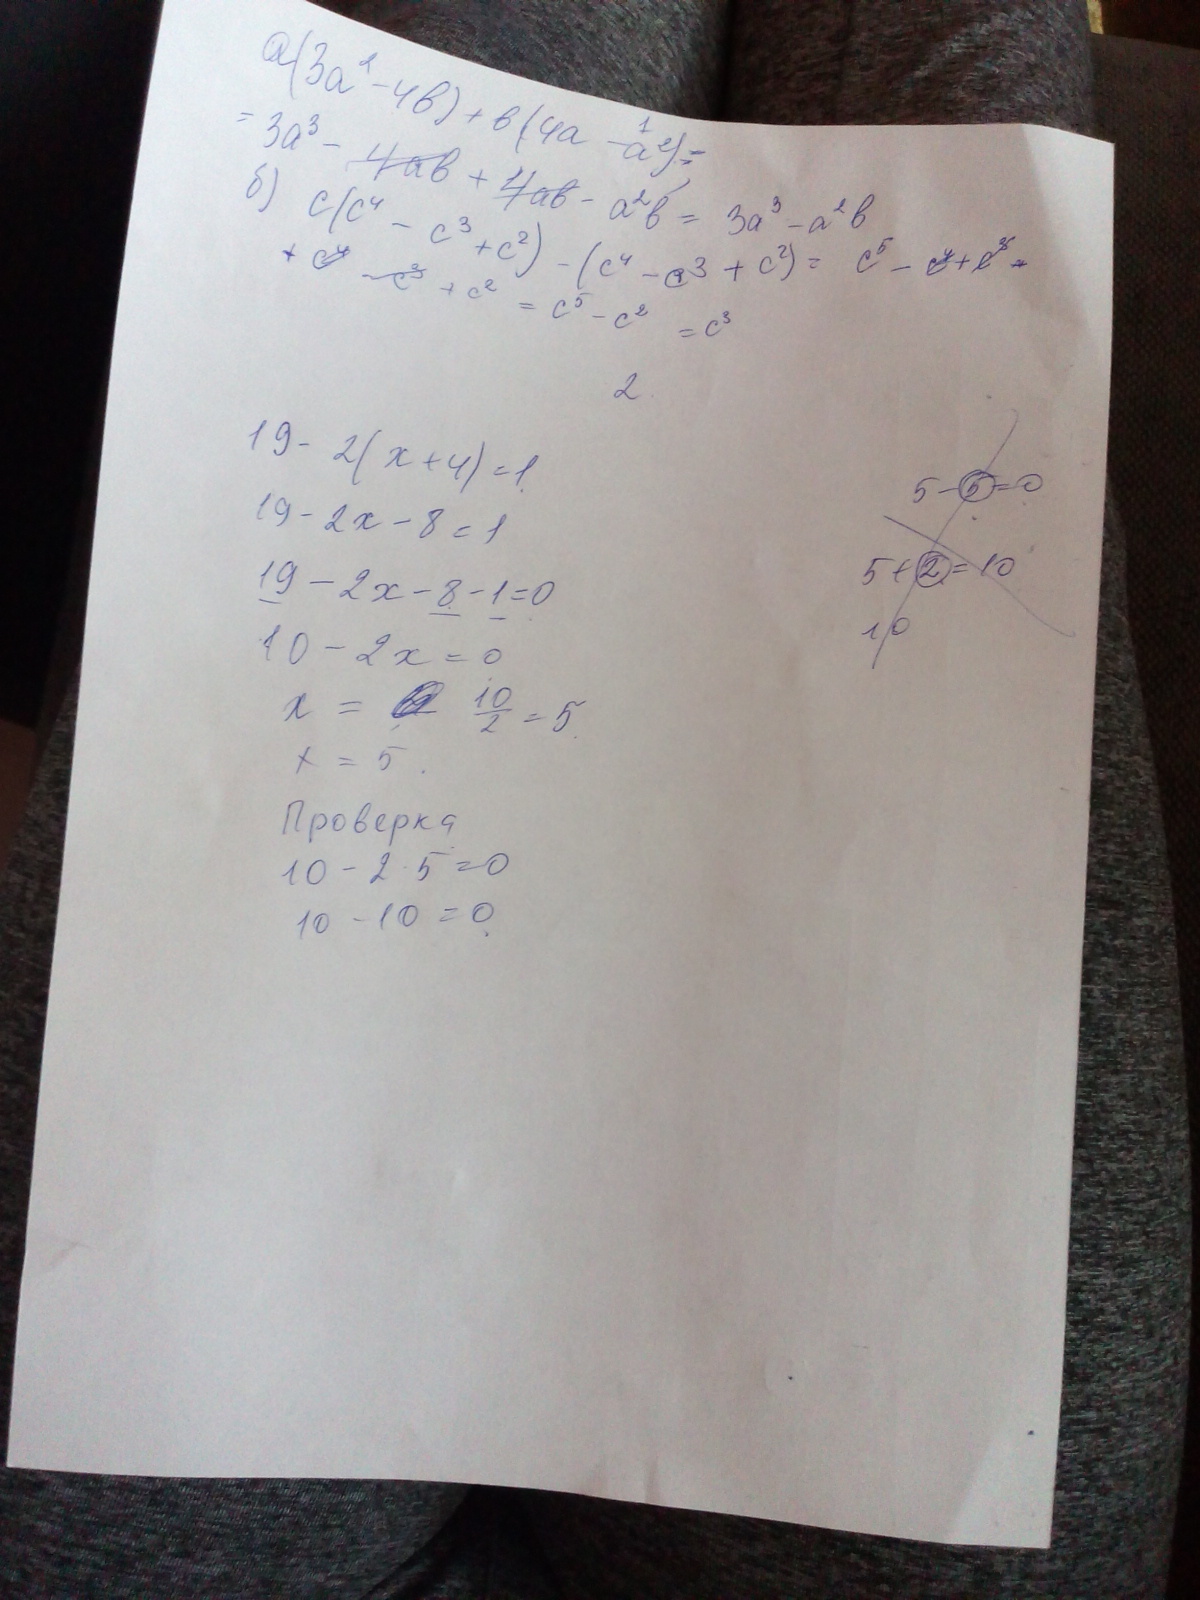 a(3a² - 4в) + в(4а - a²) =
= 3a³ - 4ав + 4ав - a²в = 3a³ - a²в
б) c(c⁴ - c³ + c²) - (c⁴ - c³ + c²) = c⁵ - c⁴ + c³ -
+ c⁴ - c³ + c² = c⁵ - c² = c³
2.
19 - 2(x+4) = 1
19 - 2x - 8 = 1
19 - 2x - 8 - 1 = 0
10 - 2x = 0
x = 10/2 = 5
x = 5.
Проверка
10 - 2·5 = 0
10 - 10 = 0
5 - 5 = 0
5 + 2 = 10
10